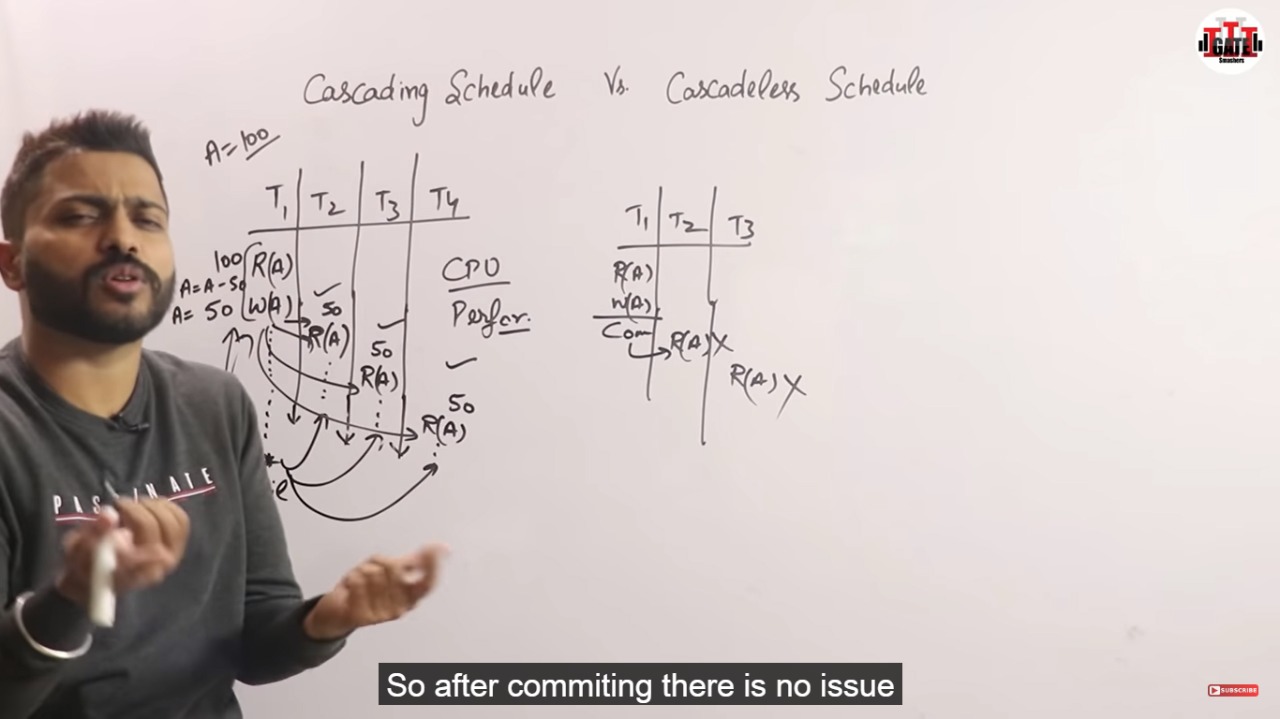 GATE
Smashers
Cascading Schedule Vs. Cascadeless Schedule
A=100
T1 T2 T3 T4
100 R(A)
A=A-50
A= 50 W(A)
50
R(A)
50
R(A)
50
R(A)
CPU
Perfor.
T1 T2 T3
R(A)
W(A)
Com
R(A) X
R(A) X
So after commiting there is no issue
SUBSCRIBE